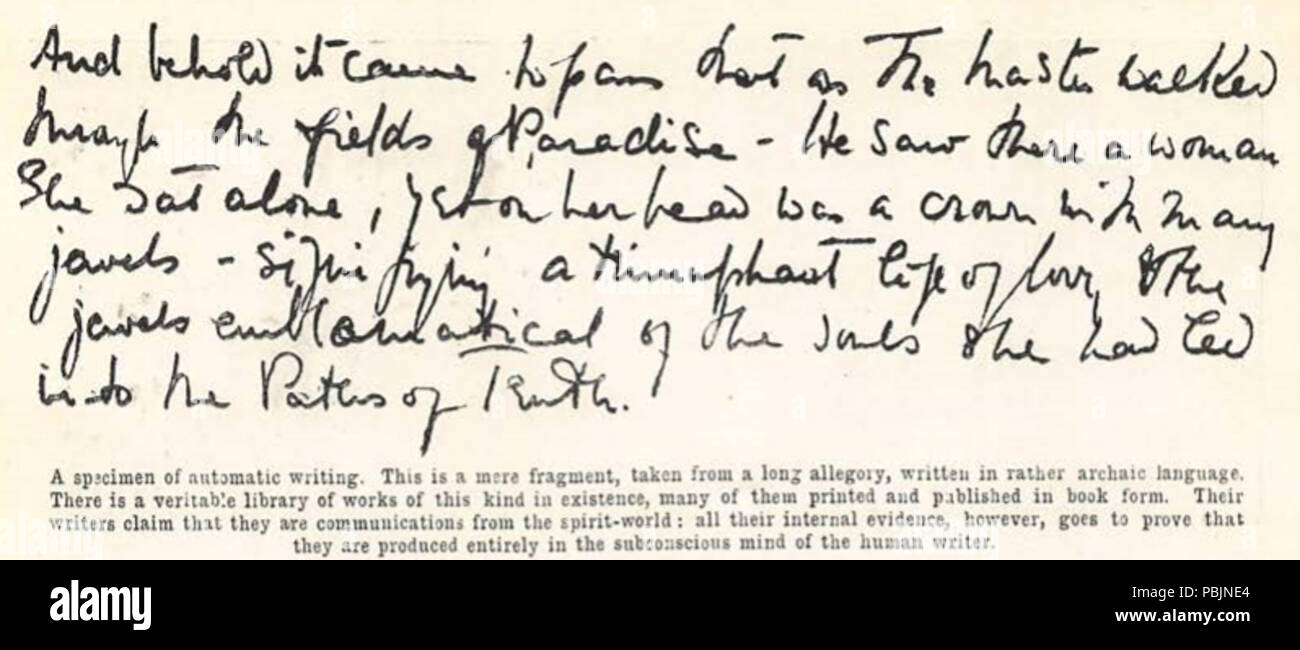 And behold it came to pass that as The Master walked
through the fields of Paradise - He saw there a woman
She sat alone, yet on her head was a crown with many
jewels - signifying a triumphant life of love, & the
jewels emblematical of the souls she had led
into the Paths of Truth.
A specimen of automatic writing. This is a mere fragment, taken from a long allegory, written in rather archaic language.
There is a veritable library of works of this kind in existence, many of them printed and published in book form. Their
writers claim that they are communications from the spirit-world: all their internal evidence, however, goes to prove that
they are produced entirely in the subconscious mind of the human writer.
alamy
Image ID: PBJNE4
www.alamy.com